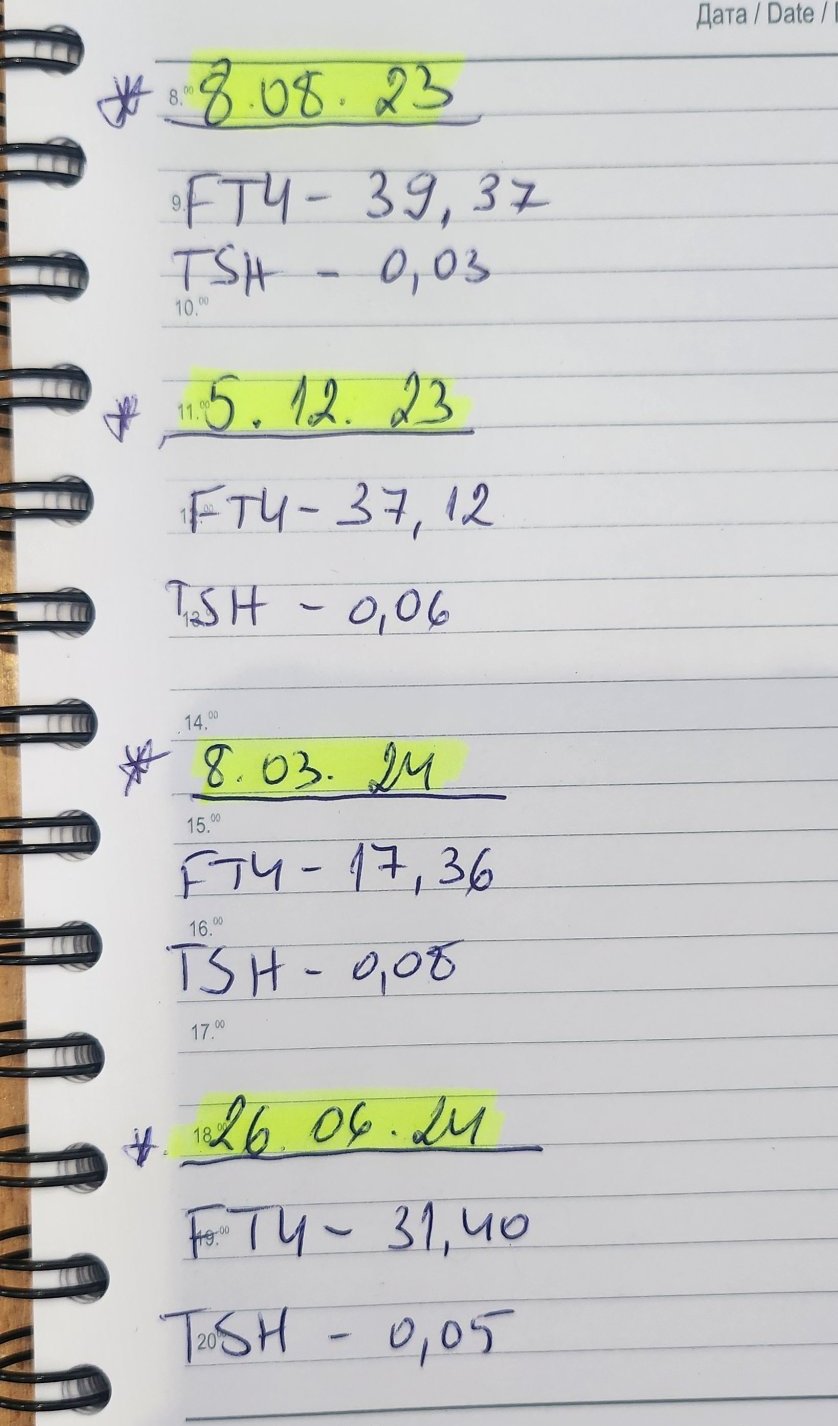 Дата / Date /
8.00 8.08.23
9. FT4 - 39,37
TSH - 0,03
10.00
11.00 5.12.23
FT4 - 37,12
TSH - 0,06
14.00
8.03.24
15.00
FT4 - 17,36
16.00
TSH - 0,08
17.00
18.00 26.06.24
19.00 FT4 - 31,40
20 TSH - 0,05